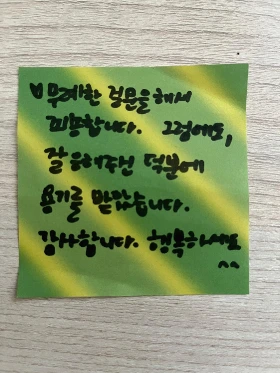 무례한 질문을해서
죄송합니다. 그럼에도,
잘 응해주신 덕분에
용기를 받았습니다.
감사합니다. 행복하세요
^^